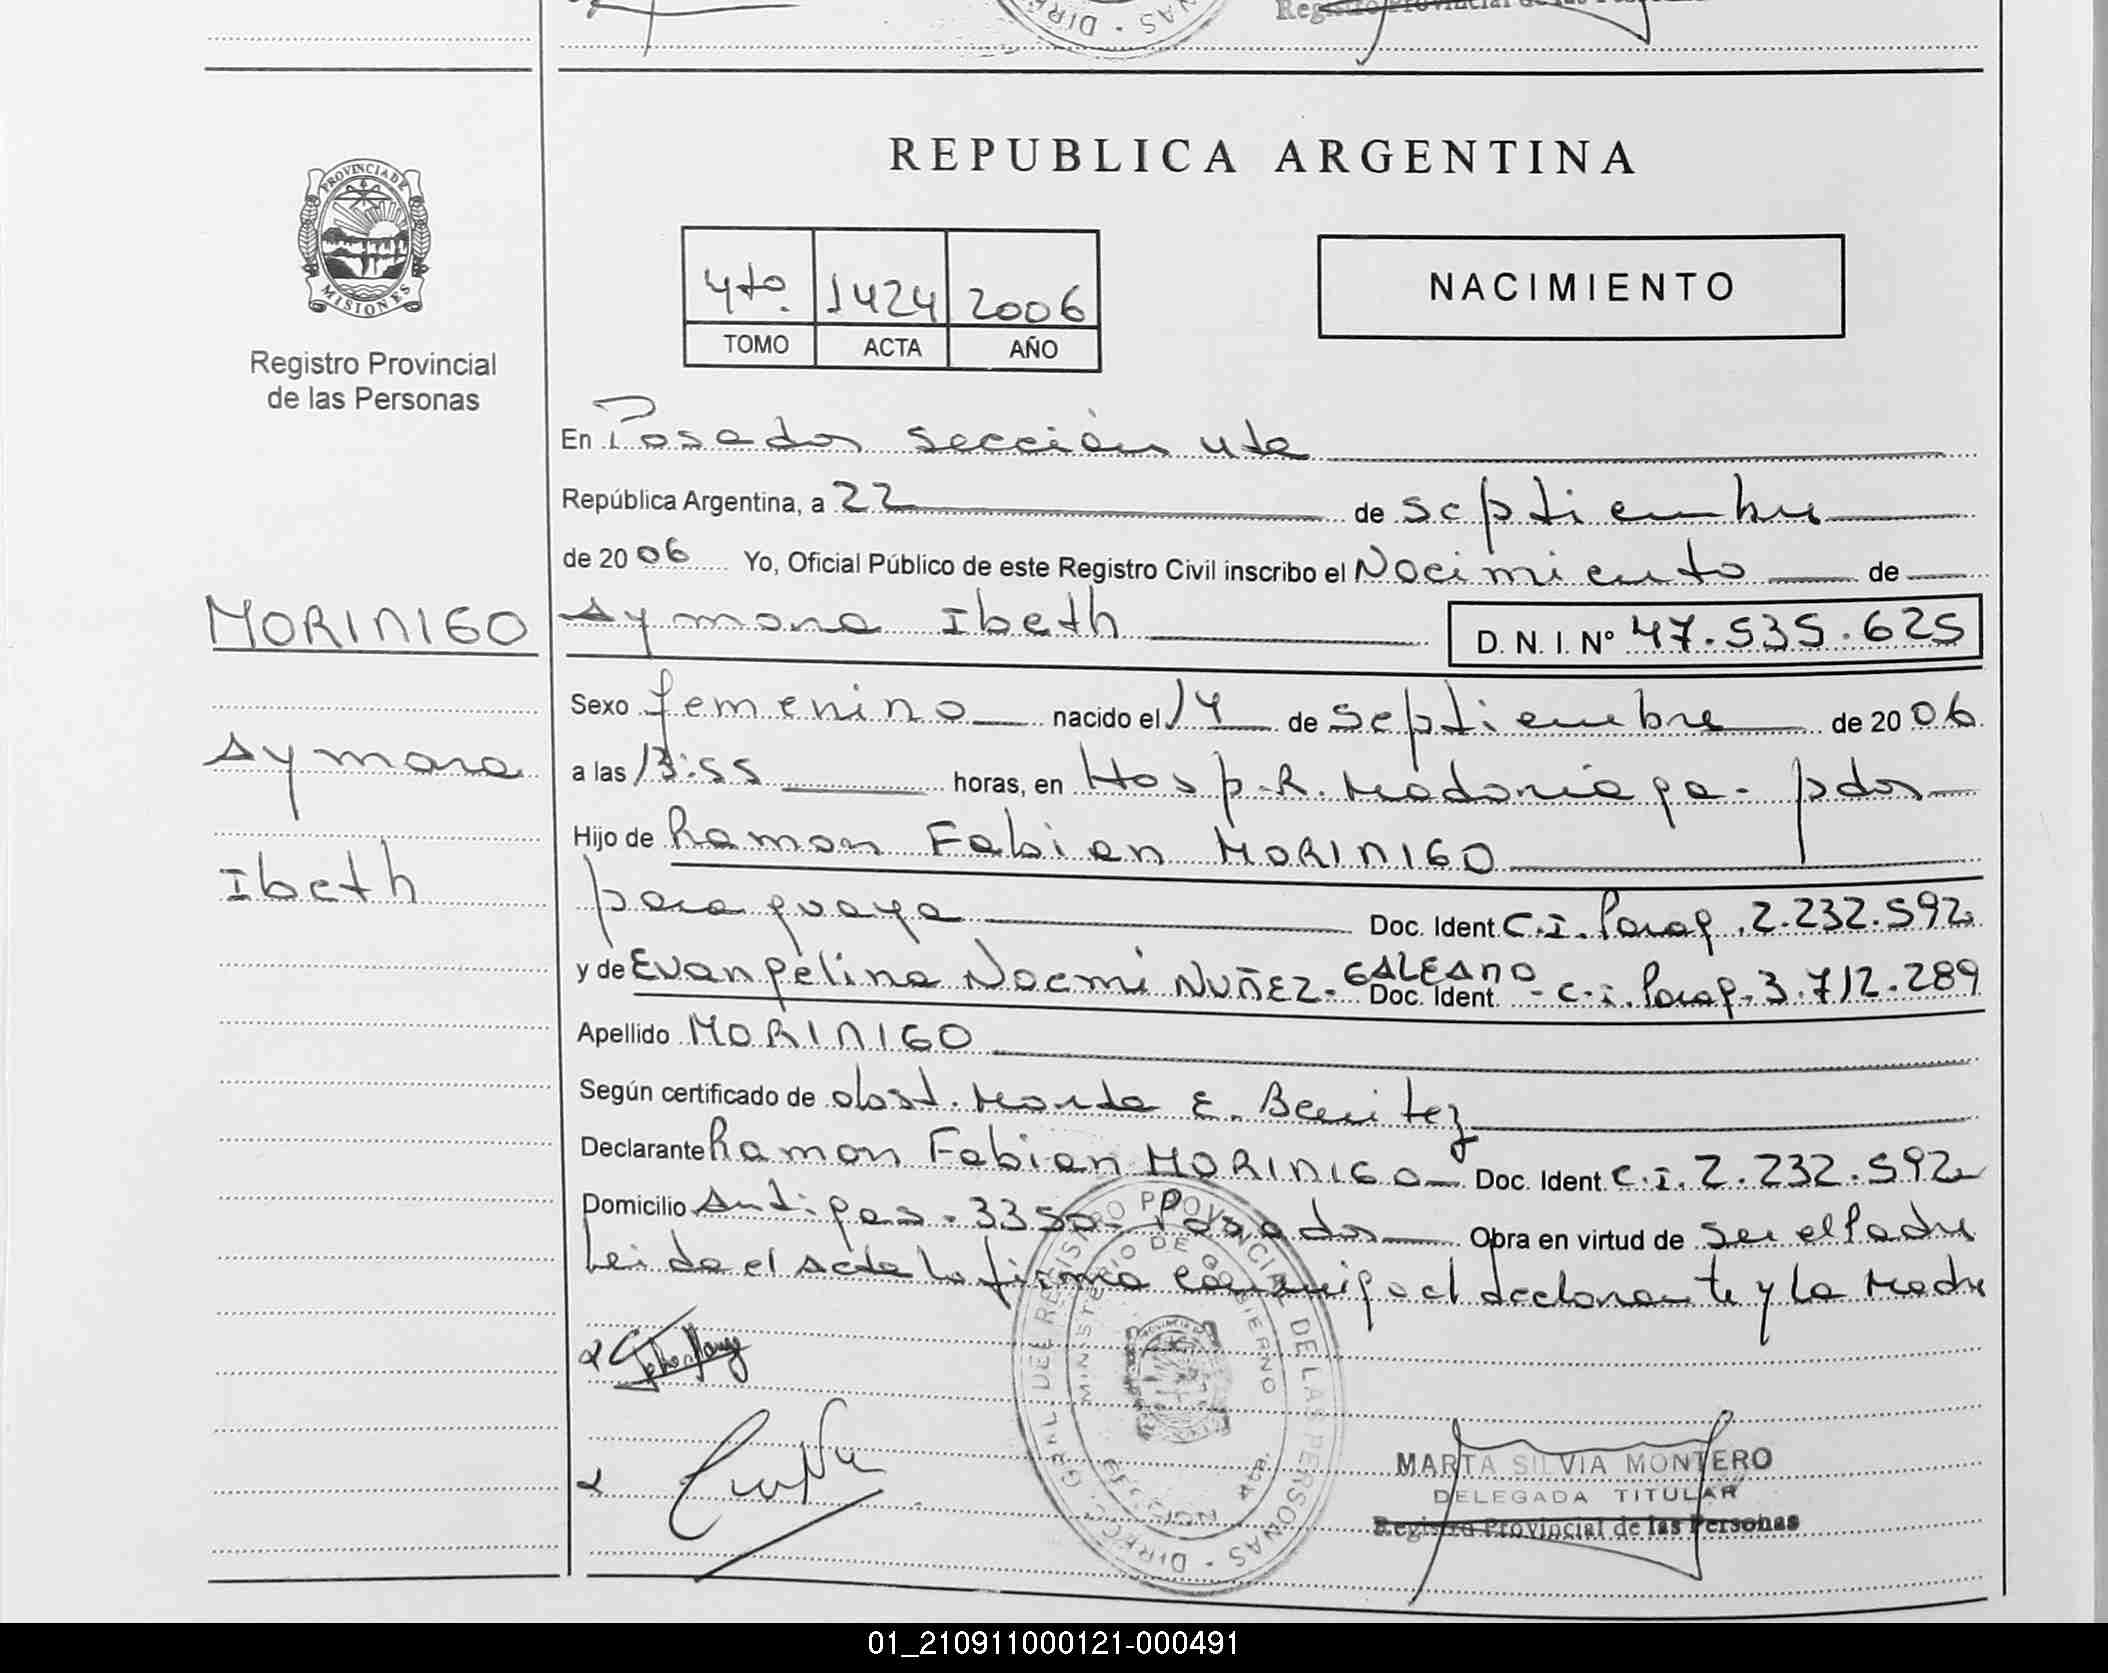 Registro Provincial de las Personas
PROVINCIA DE
MISIONES
Registro Provincial
de las Personas
REPUBLICA ARGENTINA
4to. 1424 2006
TOMO ACTA AÑO
NACIMIENTO
En Posadas sección 4ta
República Argentina, a 22 de septiembre
de 2006 Yo, Oficial Público de este Registro Civil inscribo el Nacimiento de
MORINIGO
Aymara
Ibeth
Aymara Ibeth D. N. I. Nº 47.535.625
Sexo femenino nacido el 14 de septiembre de 2006
a las 13:55 horas, en Hosp. R. Madariaga - pdas
Hijo de Ramon Fabian MORINIGO
paraguaya Doc. Ident. C.I. Parag. 2.232.592
y de Evangelina Noemi NUÑEZ - GALEANO Doc. Ident. - C.I. Parag. 3.712.289
Apellido MORINIGO
Según certificado de obst. Marta E. Benitez
Declarante Ramon Fabian MORINIGO Doc. Ident. C.I. 2.232.592
Domicilio Antipas - 3350 - Posadas Obra en virtud de ser el Padre
Leida el acta la firma conmigo el declarante y la Madre
DIREC. GRAL. DEL REGISTRO PROVINCIAL DE LAS PERSONAS
MINISTERIO DE GOBIERNO
MARTA SILVIA MONTERO
DELEGADA TITULAR
Registro Provincial de las Personas
01_210911000121-000491